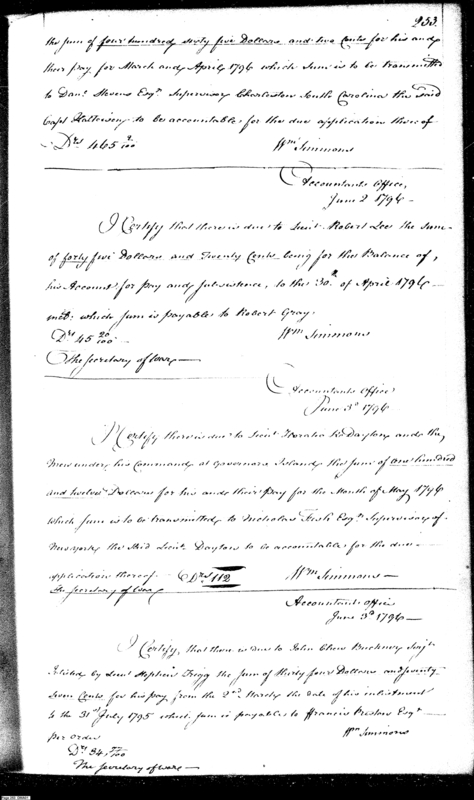 253.
the sum of four hundred sixty five Dollars and two Cents for his and
their pay for March and April 1796 which sum is to be transmitted
to Danl. Stevens Esqr. Supervisor Charleston South Carolina the said
Capt. to be accountable for the due application thereof
Drs 465 2/100 Wm Simmons
Accountants Office,
June 2 1796
I Certify that there is due to Lieut. Robert Lee the sum
of forty five Dollars and Twenty Cents being for the Balance of,
his Account for pay and subsistence, to the 30th of April 1796
which sum is payable to Robert Gray.
Drs 45 20/100 Wm Simmons
The Secretary of War
Accountants Office
June 3d 1796
I Certify there is due to Lieut. Horatio R. Dayton and the
men under his Command at Governors Island the sum of one hundred
and twelve Dollars for his and their Pay for the Month of May 1796
which sum is to be transmitted to Nicholas Fish Esqr. Supervisor of
New York, the said Lieut. Dayton to be accountable for the due
application thereof Drs 112 Wm Simmons
The Secretary of War
Accountants Office
June 3d 1796
I Certify, that there is due to John Chew Buckner Serjt.
by Lieut. Stephen Trigg the sum of thirty four Dollars and seventy
seven Cents for his pay from the 2nd March the date of his enlistment
to the 31st July 1795 which sum is payable to Francis Preston Esqr.
per order Wm Simmons
Drs 34 77/100
The Secretary of War